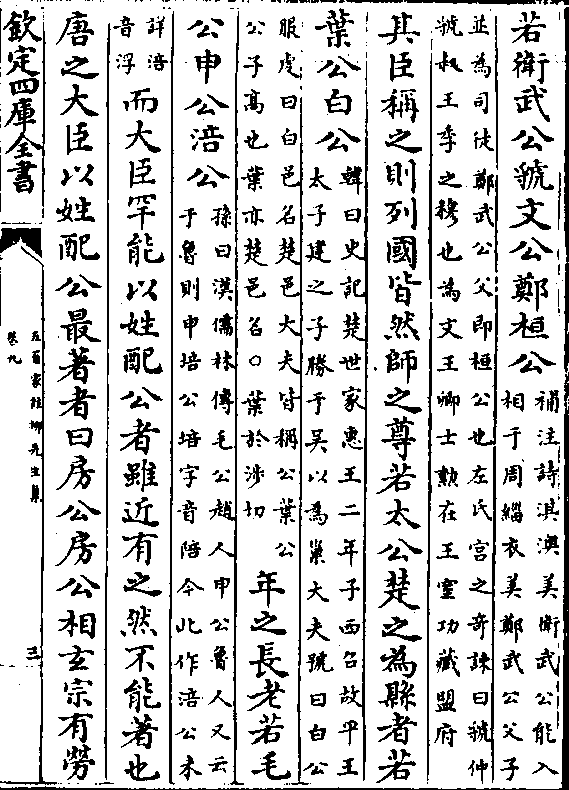 若衛武公虢文公鄭桓公補注詩淇澳美衛武公能入相于周緇衣美鄭武公父子
並為司徒鄭武公父即桓公也左氏宮之奇諫曰虢仲虢叔王季之穆也為文王卿士勲在王室功藏盟府
其臣稱之則列國皆然師之尊若太公楚之為縣者若
葉公白公韓曰史記楚世家惠王二年子西召故平王太子建之子勝于吳以為巢大夫號曰白公
服虔曰白邑名楚邑大夫皆稱公葉公公子高也葉亦楚邑名〇葉於涉切年之長老若毛
公申公涪公孫曰漢儒林傳毛公趙人申公魯人又云于魯則申培公培字音陪今此作涪公本
詳涪音浮而大臣罕能以姓配公者雖近有之然不能著也
唐之大臣以姓配公最著者曰房公房公相玄宗有勞
欽定四庫全書
五百家注柳先生集
卷九
三